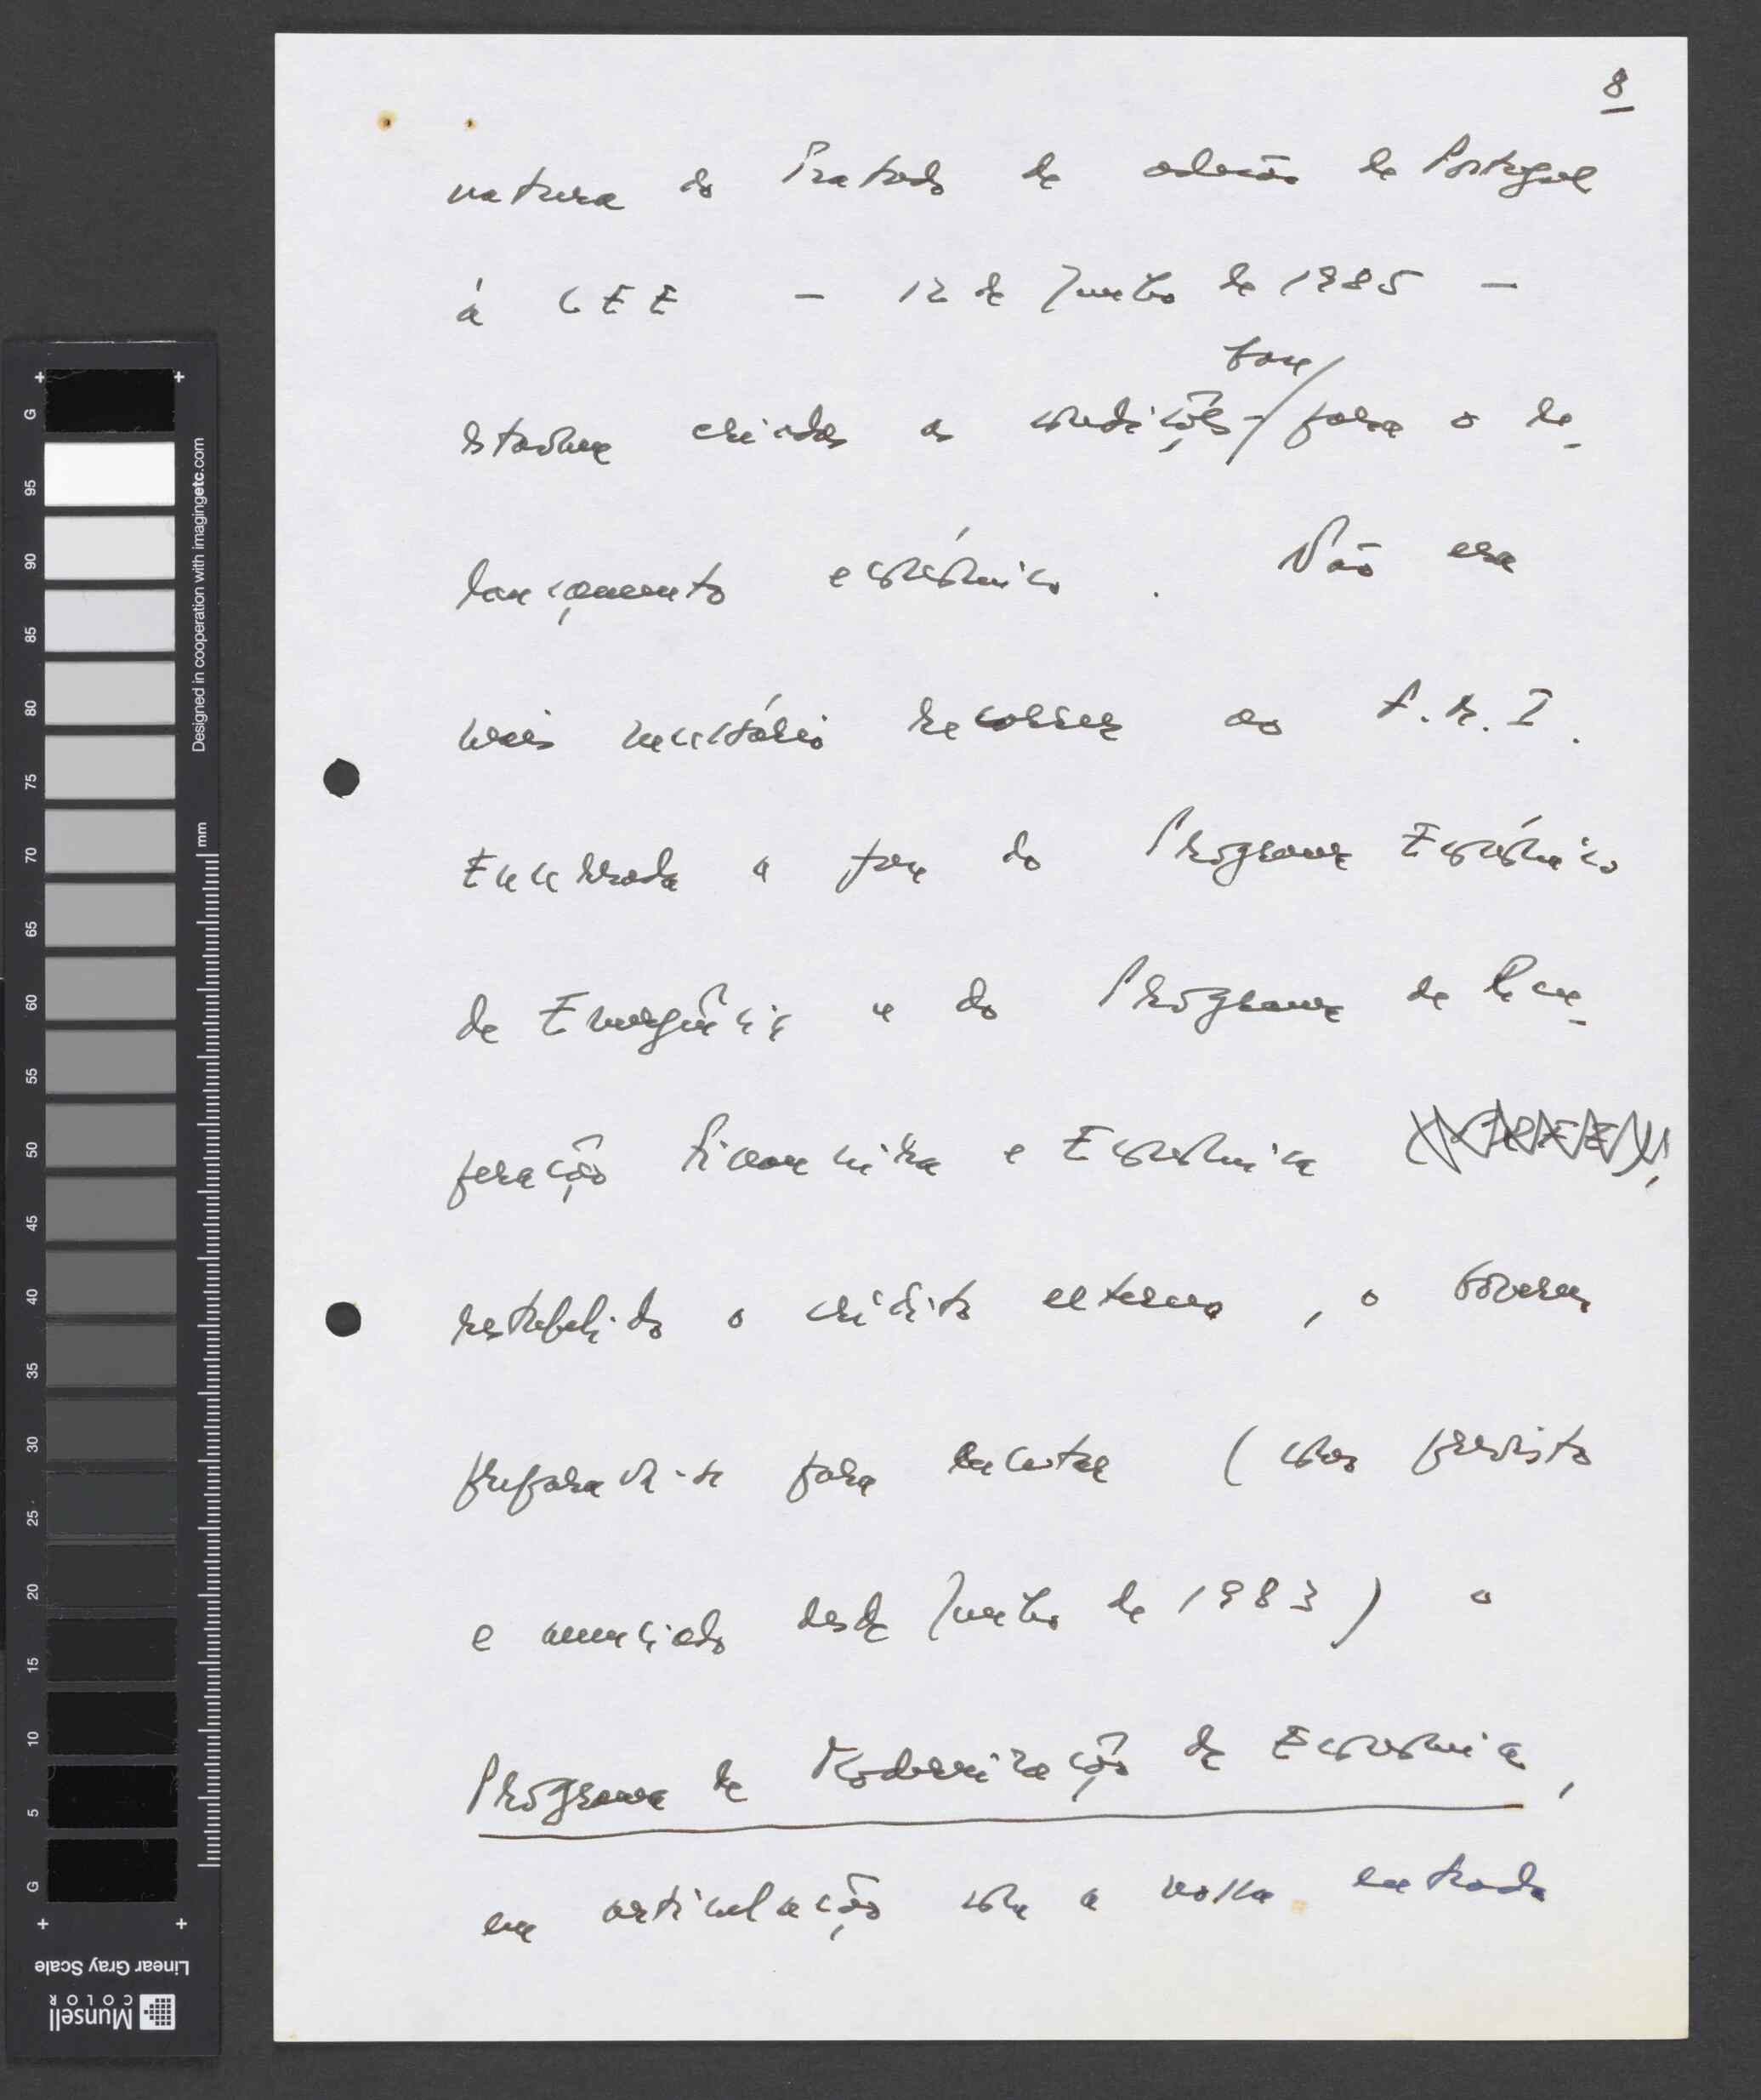 8
natura do Tratado de adesão de Portugal
à CEE – 12 de Junho de 1985 –
estavam criadas as condições para o re-
lançamento económico. Não era
mais necessário recorrer ao F.M.I.
Encerrada a fase do Programa Económico
de Emergência e do Programa de Recu-
peração Financeira e Económica,
restabelecido o crédito externo, o Governo
preparava-se para executar (como previsto
e anunciado desde Junho de 1983) o
Programa de Modernização da Economia,
em articulação com a nossa entrada
G
95
90
85
80
75
70
65
60
55
50
45
40
35
30
25
20
15
10
5
G
Designed in cooperation with imagingetc.com
mm
Linear Gray Scale
Munsell
COLOR